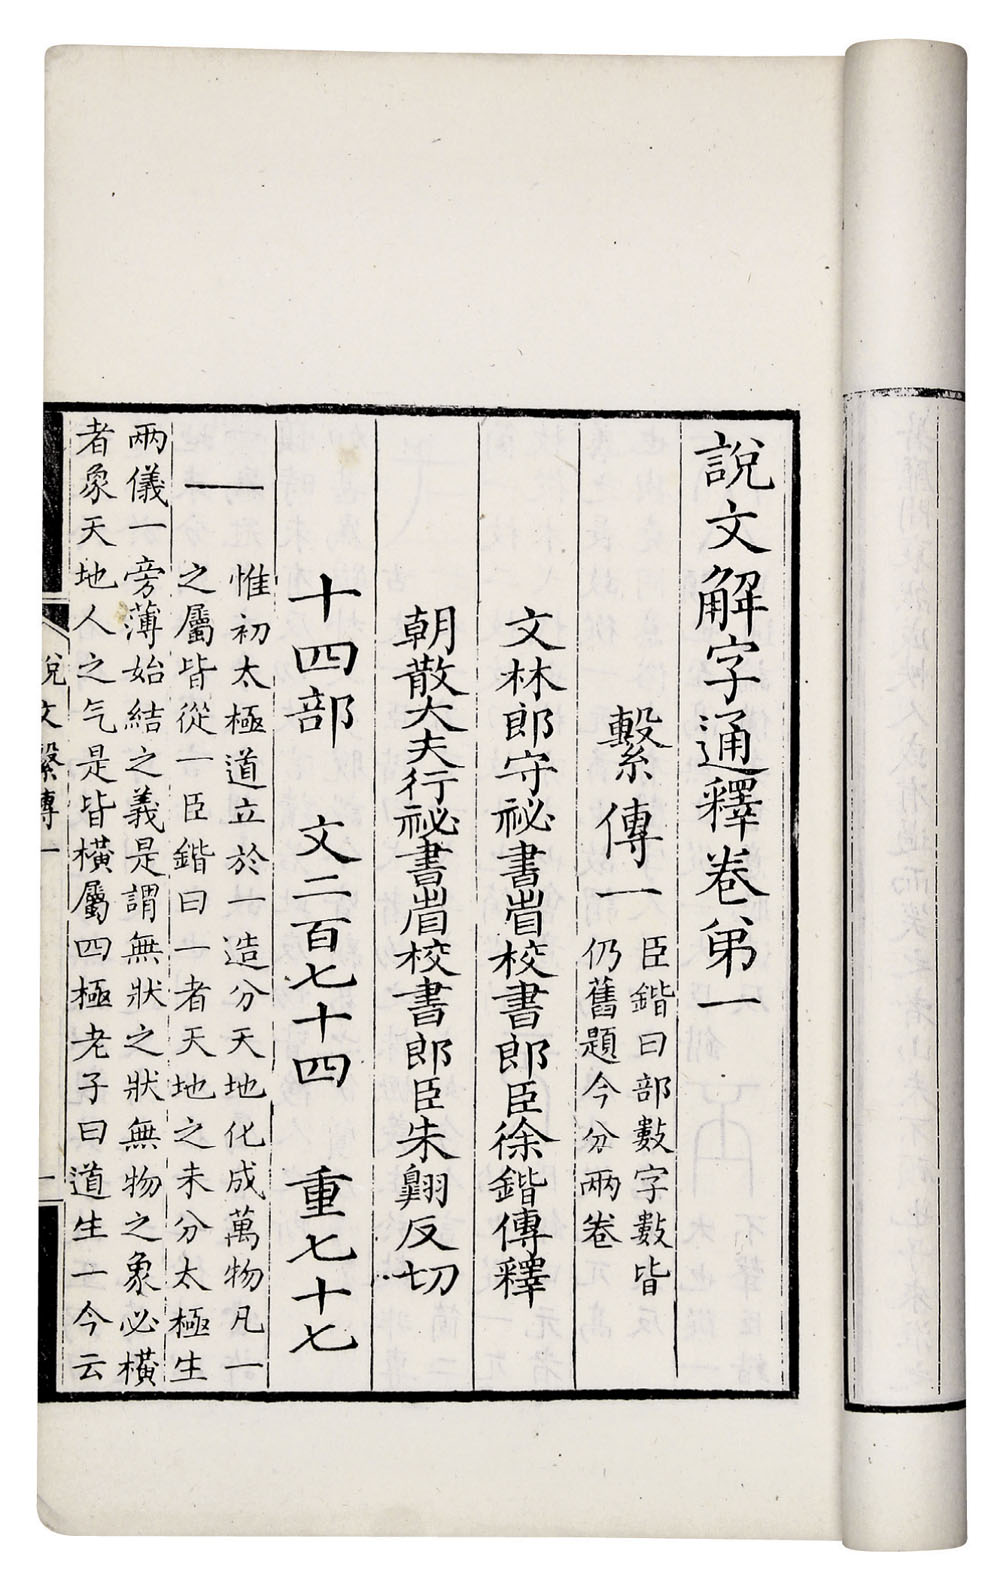 說文解字通釋卷弟一
繫傳一
臣鍇曰部數字數皆
仍舊題今分兩卷
文林郎守祕書省校書郎臣徐鍇傳釋
朝散大夫行祕書省校書郎臣朱翱反切
十四部 文二百七十四 重七十七
一
惟初太極道立於一造分天地化成萬物凡一
之屬皆從一臣鍇曰一者天地之未分太極生
兩儀一旁薄始結之義是謂無狀之狀無物之象必橫
者象天地人之气是皆橫屬四極老子曰道生一今云
說文繫傳一